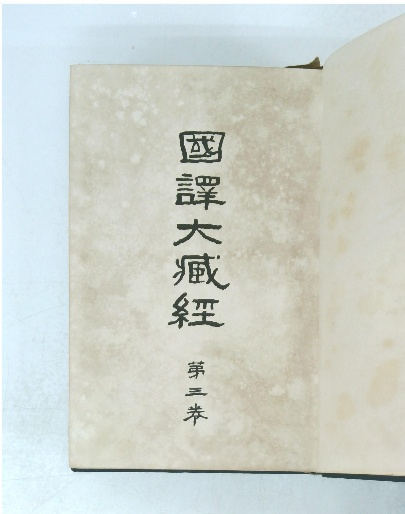 國譯大藏經
第三卷